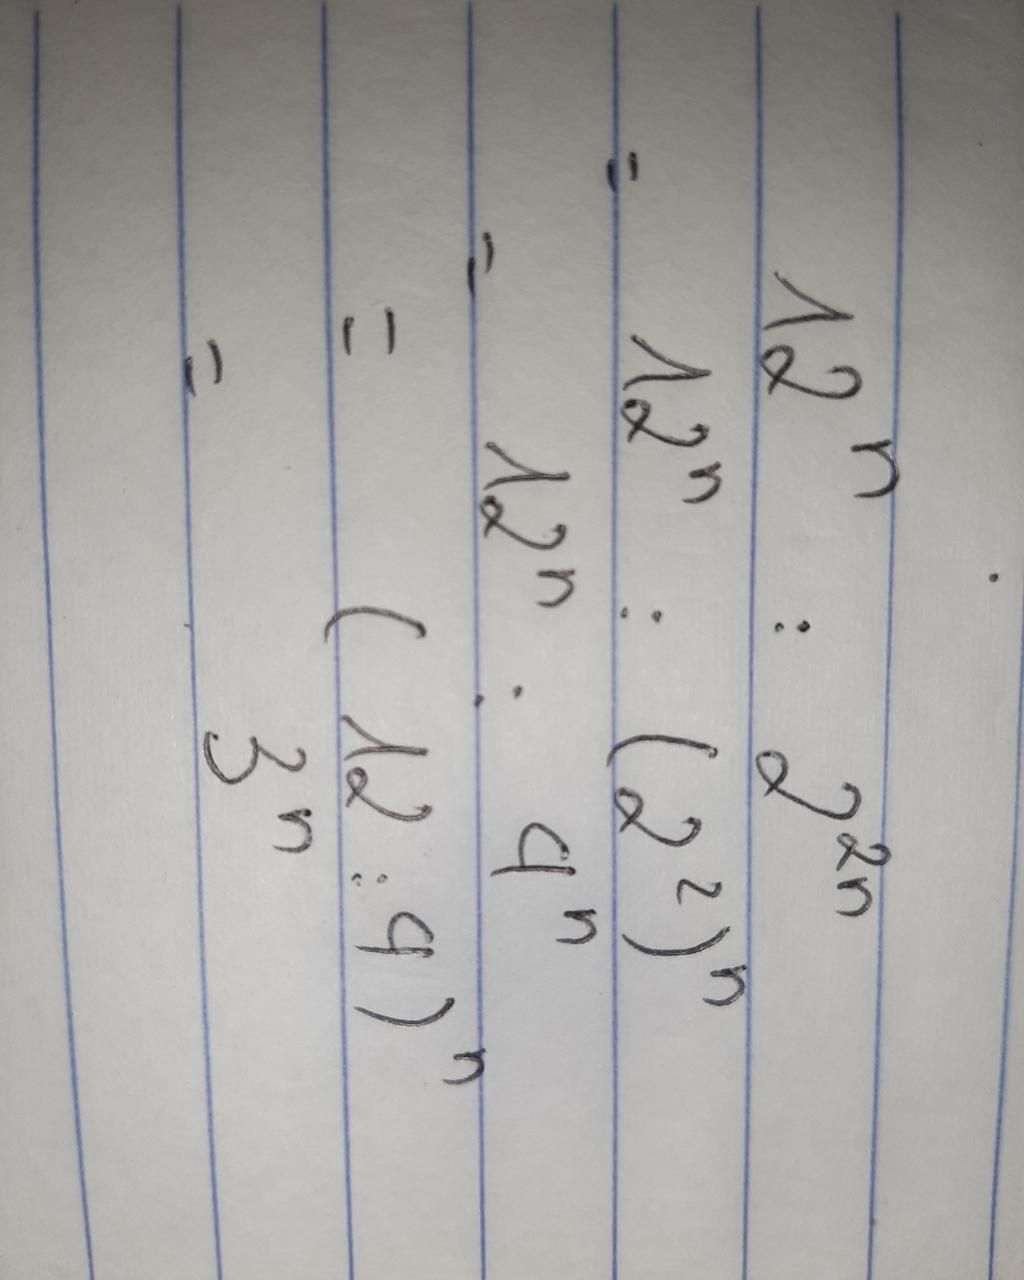 12ⁿ : 2²ⁿ
= 12ⁿ : (2²)ⁿ
= 12ⁿ : 4ⁿ
= (12 : 4)ⁿ
= 3ⁿ